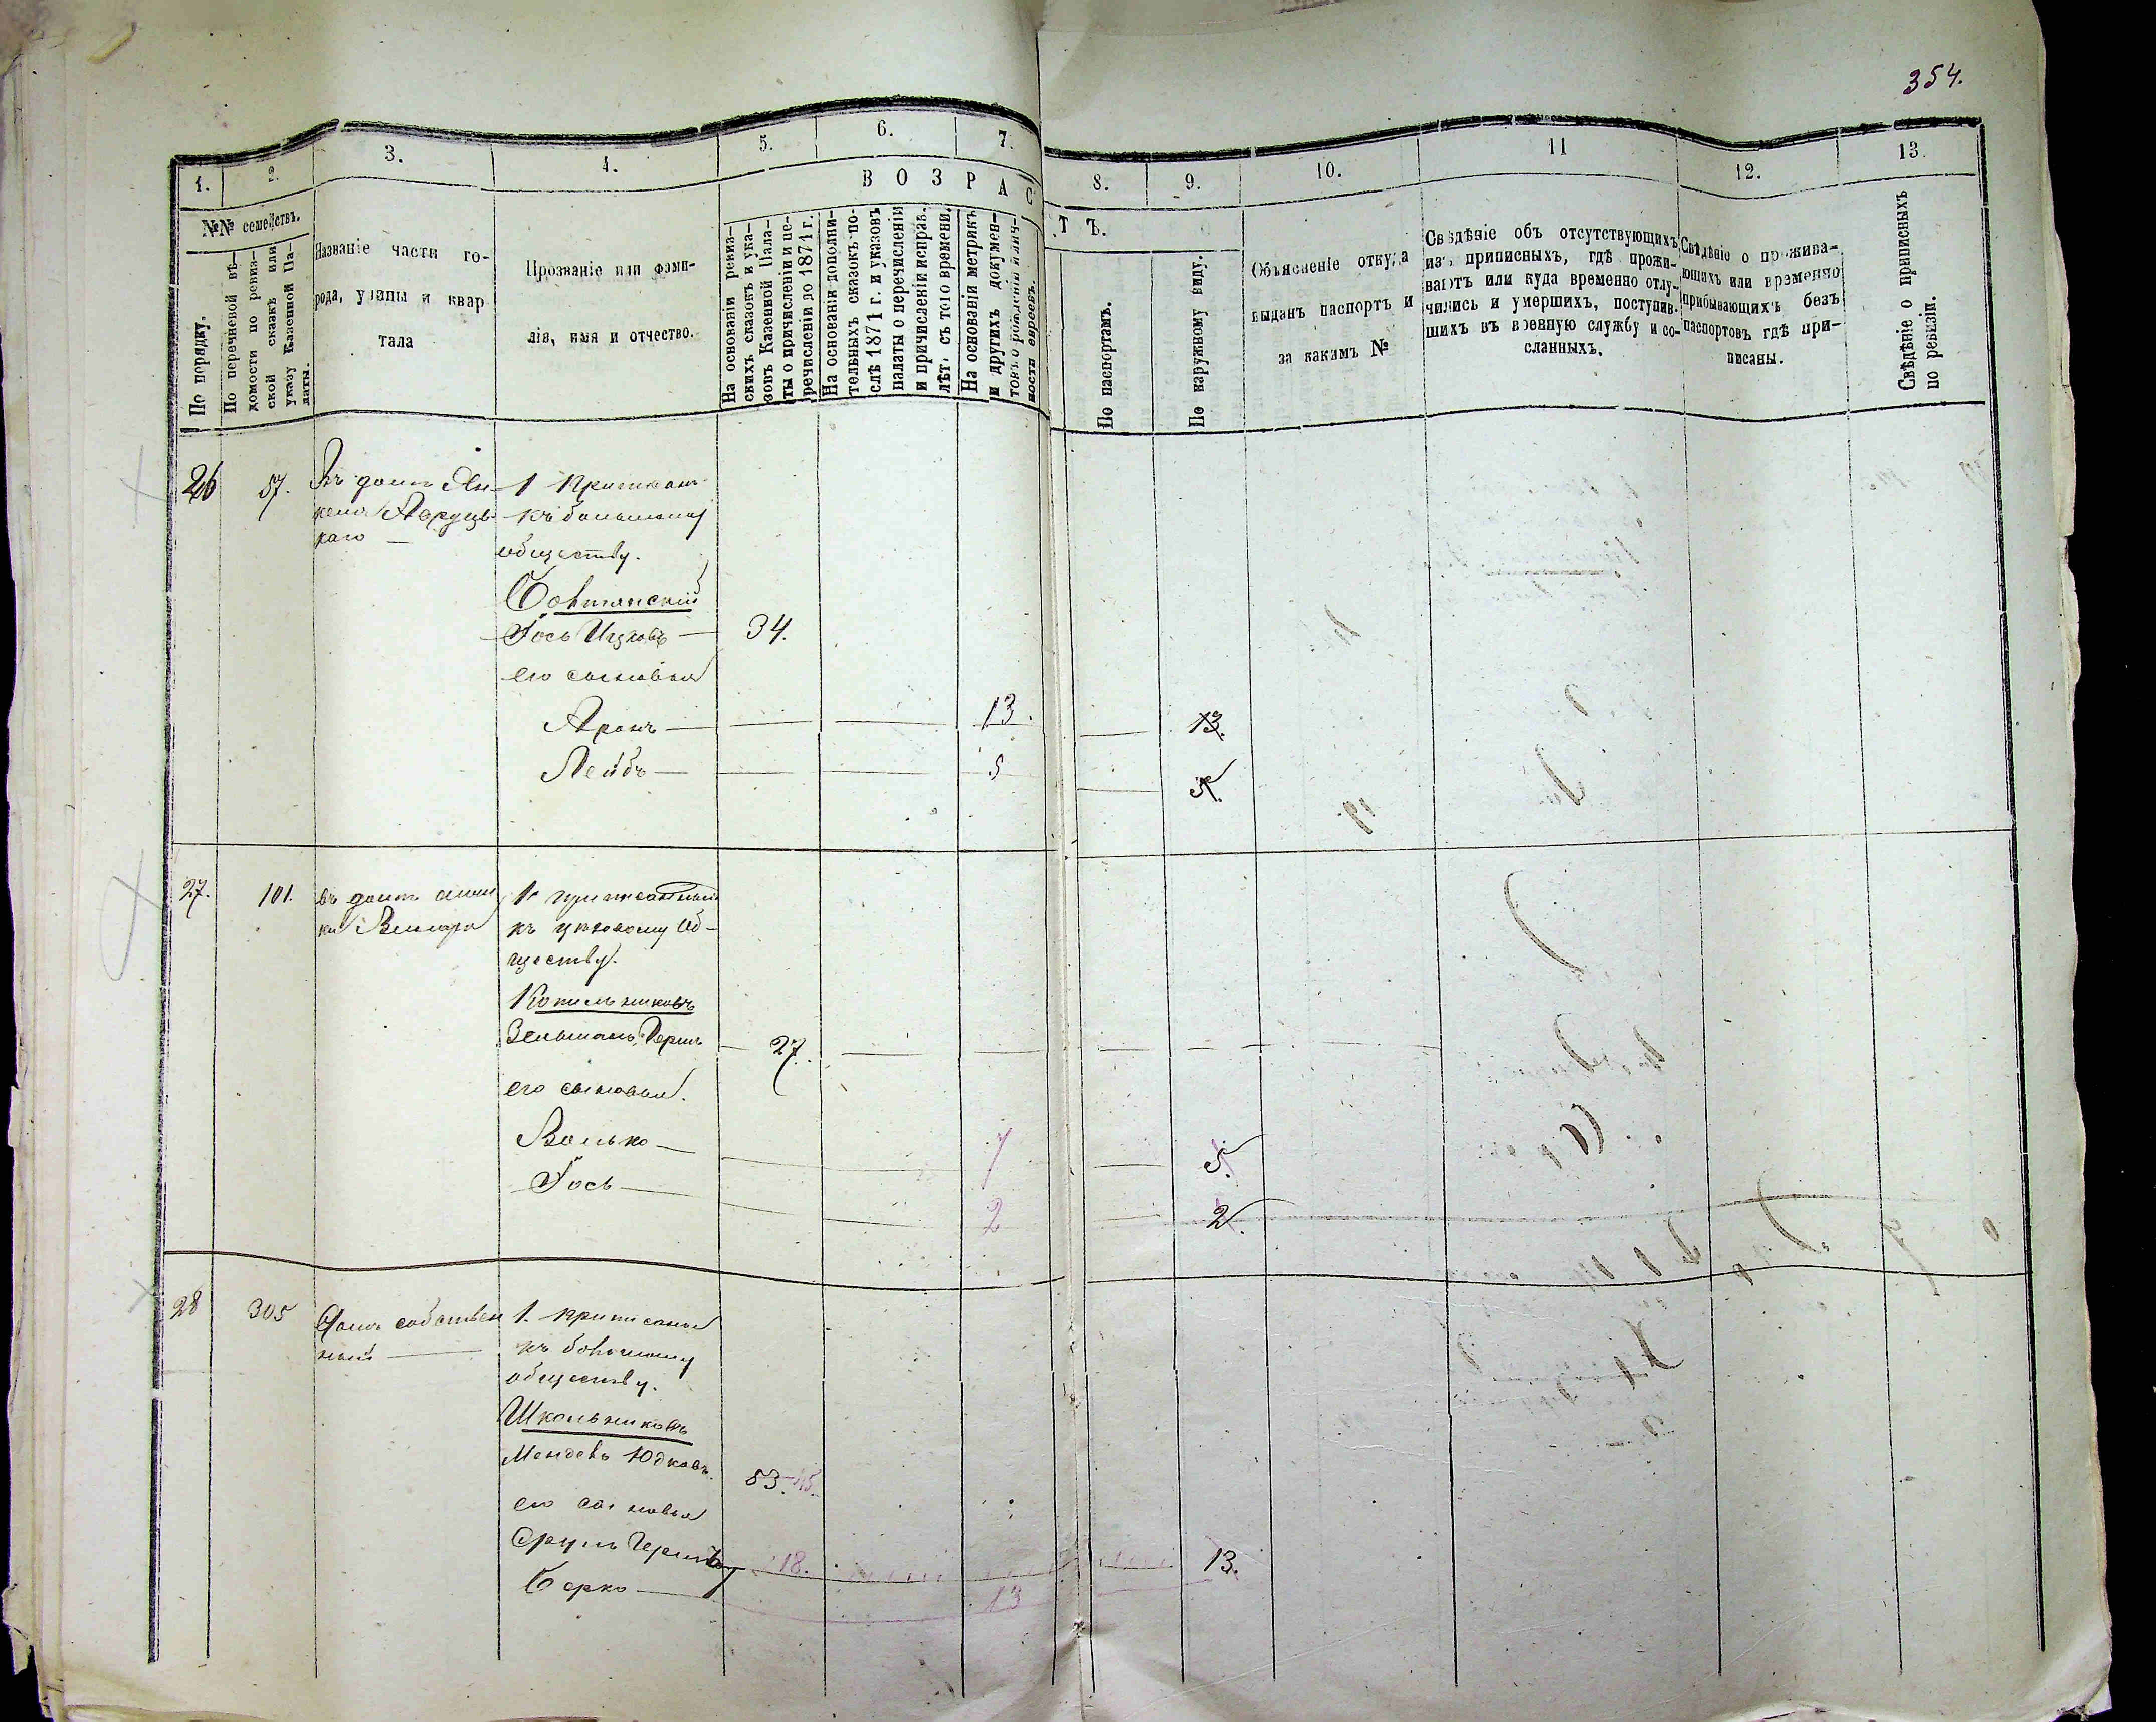 354.
1.
2.
3.
4.
5.
6.
7.
8.
9.
10.
11
12.
13.
В О З Р А С Т Ъ.
№№ семействъ.
По порядку.
По перечневой вѣ-
домости по ревиз-
ской сказкѣ или
указу Казенной Па-
латы.
Названіе части го-
рода, улицы и квар
тала
Прозваніе или фами-
лія, имя и отчество.
На основаніи ревиз-
скихъ сказокъ и ука-
зовъ Казенной Пала-
ты о причисленіи и пе-
речисленіи до 1871 г.
На основаніи дополни-
тельныхъ сказокъ по-
слѣ 1871 г. и указовъ
палаты о перечисленіи
и причисленіи исправ.
лѣт. съ того времени.
На основаніи метрикъ
и другихъ докумен-
товъ о рожденіи и лич-
ности евреевъ.
По паспортамъ.
По наружному виду.
Объясненіе откуда
выданъ паспортъ и
за какимъ №
Свѣдѣніе объ отсутствующихъ
изъ приписныхъ, гдѣ прожи-
ваютъ или куда временно отлу-
чились и умершихъ, поступив-
шихъ въ военную службу и со-
сланныхъ.
Свѣдѣніе о прожива-
ющихъ или временно
прибывающихъ безъ
паспортовъ гдѣ при-
писаны.
Свѣдѣніе о приписныхъ
по ревизіи.
26 57. Въ домѣ Ян-
келя
каго —
1 Приписан
къ большому
обществу.
Іось Ицковъ — 34.
его сыновья
Аронъ — 13. 13.
Лейбъ — 5 5.
27. 101. въ домѣ
1. приписанный
къ узкому об-
ществу.
Котельниковъ
Зельманъ Герш 27.
его сыновья.
Волько — 7 5.
Іось — 2 2.
28 305 Домъ собствен
ный —
1. приписаны
къ большому
обществу.
Школьниковъ
Мендель Юдковъ. 53. 45.
его сыновья
Сруль Гершъ 18. 13.
Берко — 13